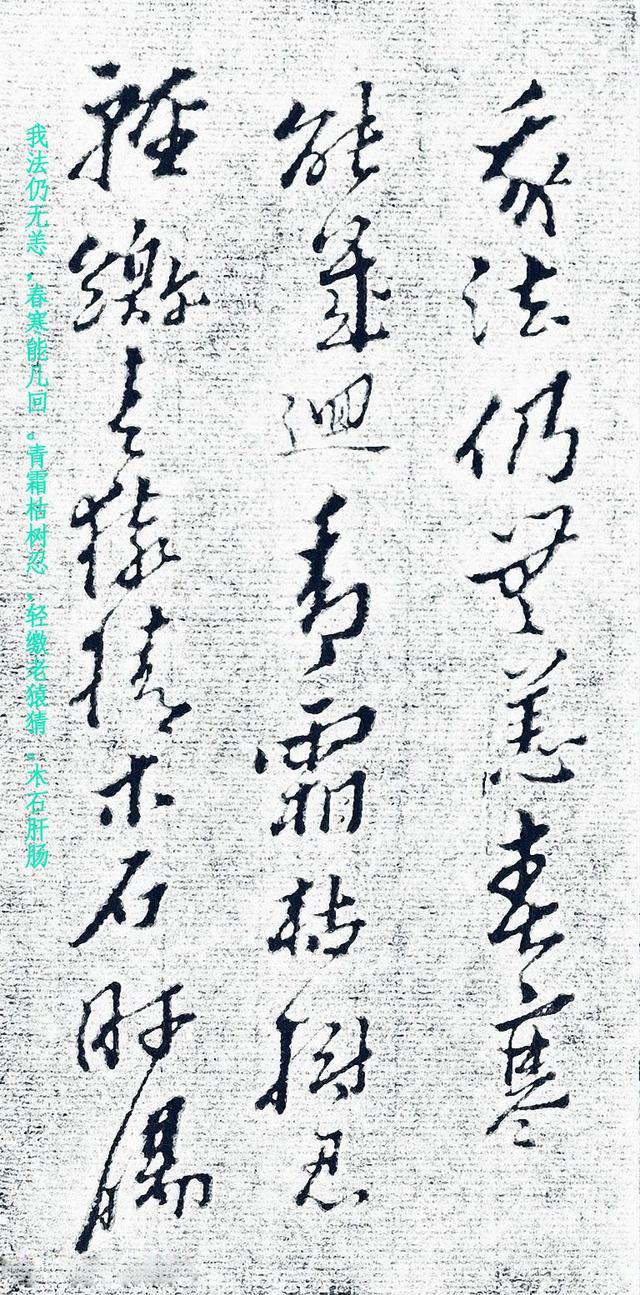 我法仍無恙春寒
能幾迴青霜枯樹忍
輕繳老猿猜木石肝腸
我法仍无恙，春寒能几回。青霜枯树忍，轻缴老猿猜。木石肝肠